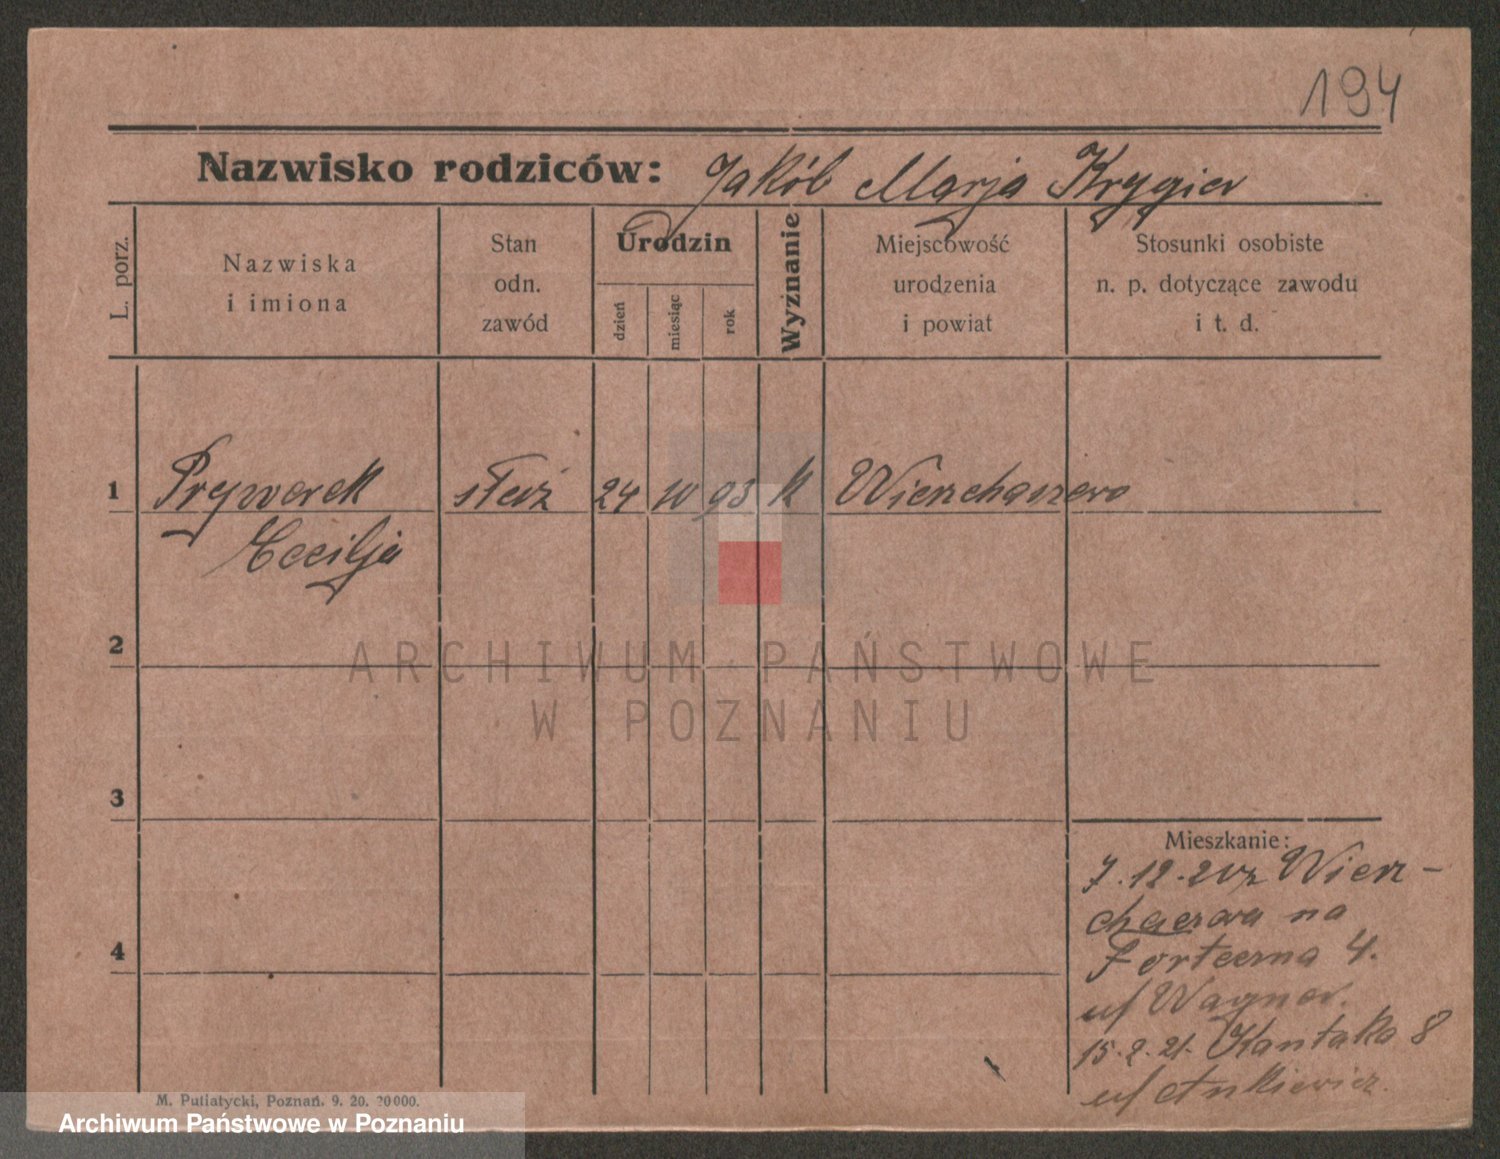 194
Nazwisko rodziców: Jakób Marja Krygier
L. porz.
Nazwiska
i imiona
Stan
odn.
zawód
Urodzin
dzień
miesiąc
rok
Wyznanie
Miejscowość
urodzenia
i powiat
Stosunki osobiste
n. p. dotyczące zawodu
i t. d.
1 Prywerek służ 24 10 93 k Wierzchaczewo
Cecilja
2
ARCHIWUM PAŃSTWOWE
W POZNANIU
3
Mieszkanie:
7.12.20 z Wierz-
chaczewa na
Forteczna 4.
u/ Wagner.
15.2.21. Kantaka 8
u/ Ankiewicz.
4
M. Putiatycki, Poznań. 9. 20. 20000.
Archiwum Państwowe w Poznaniu